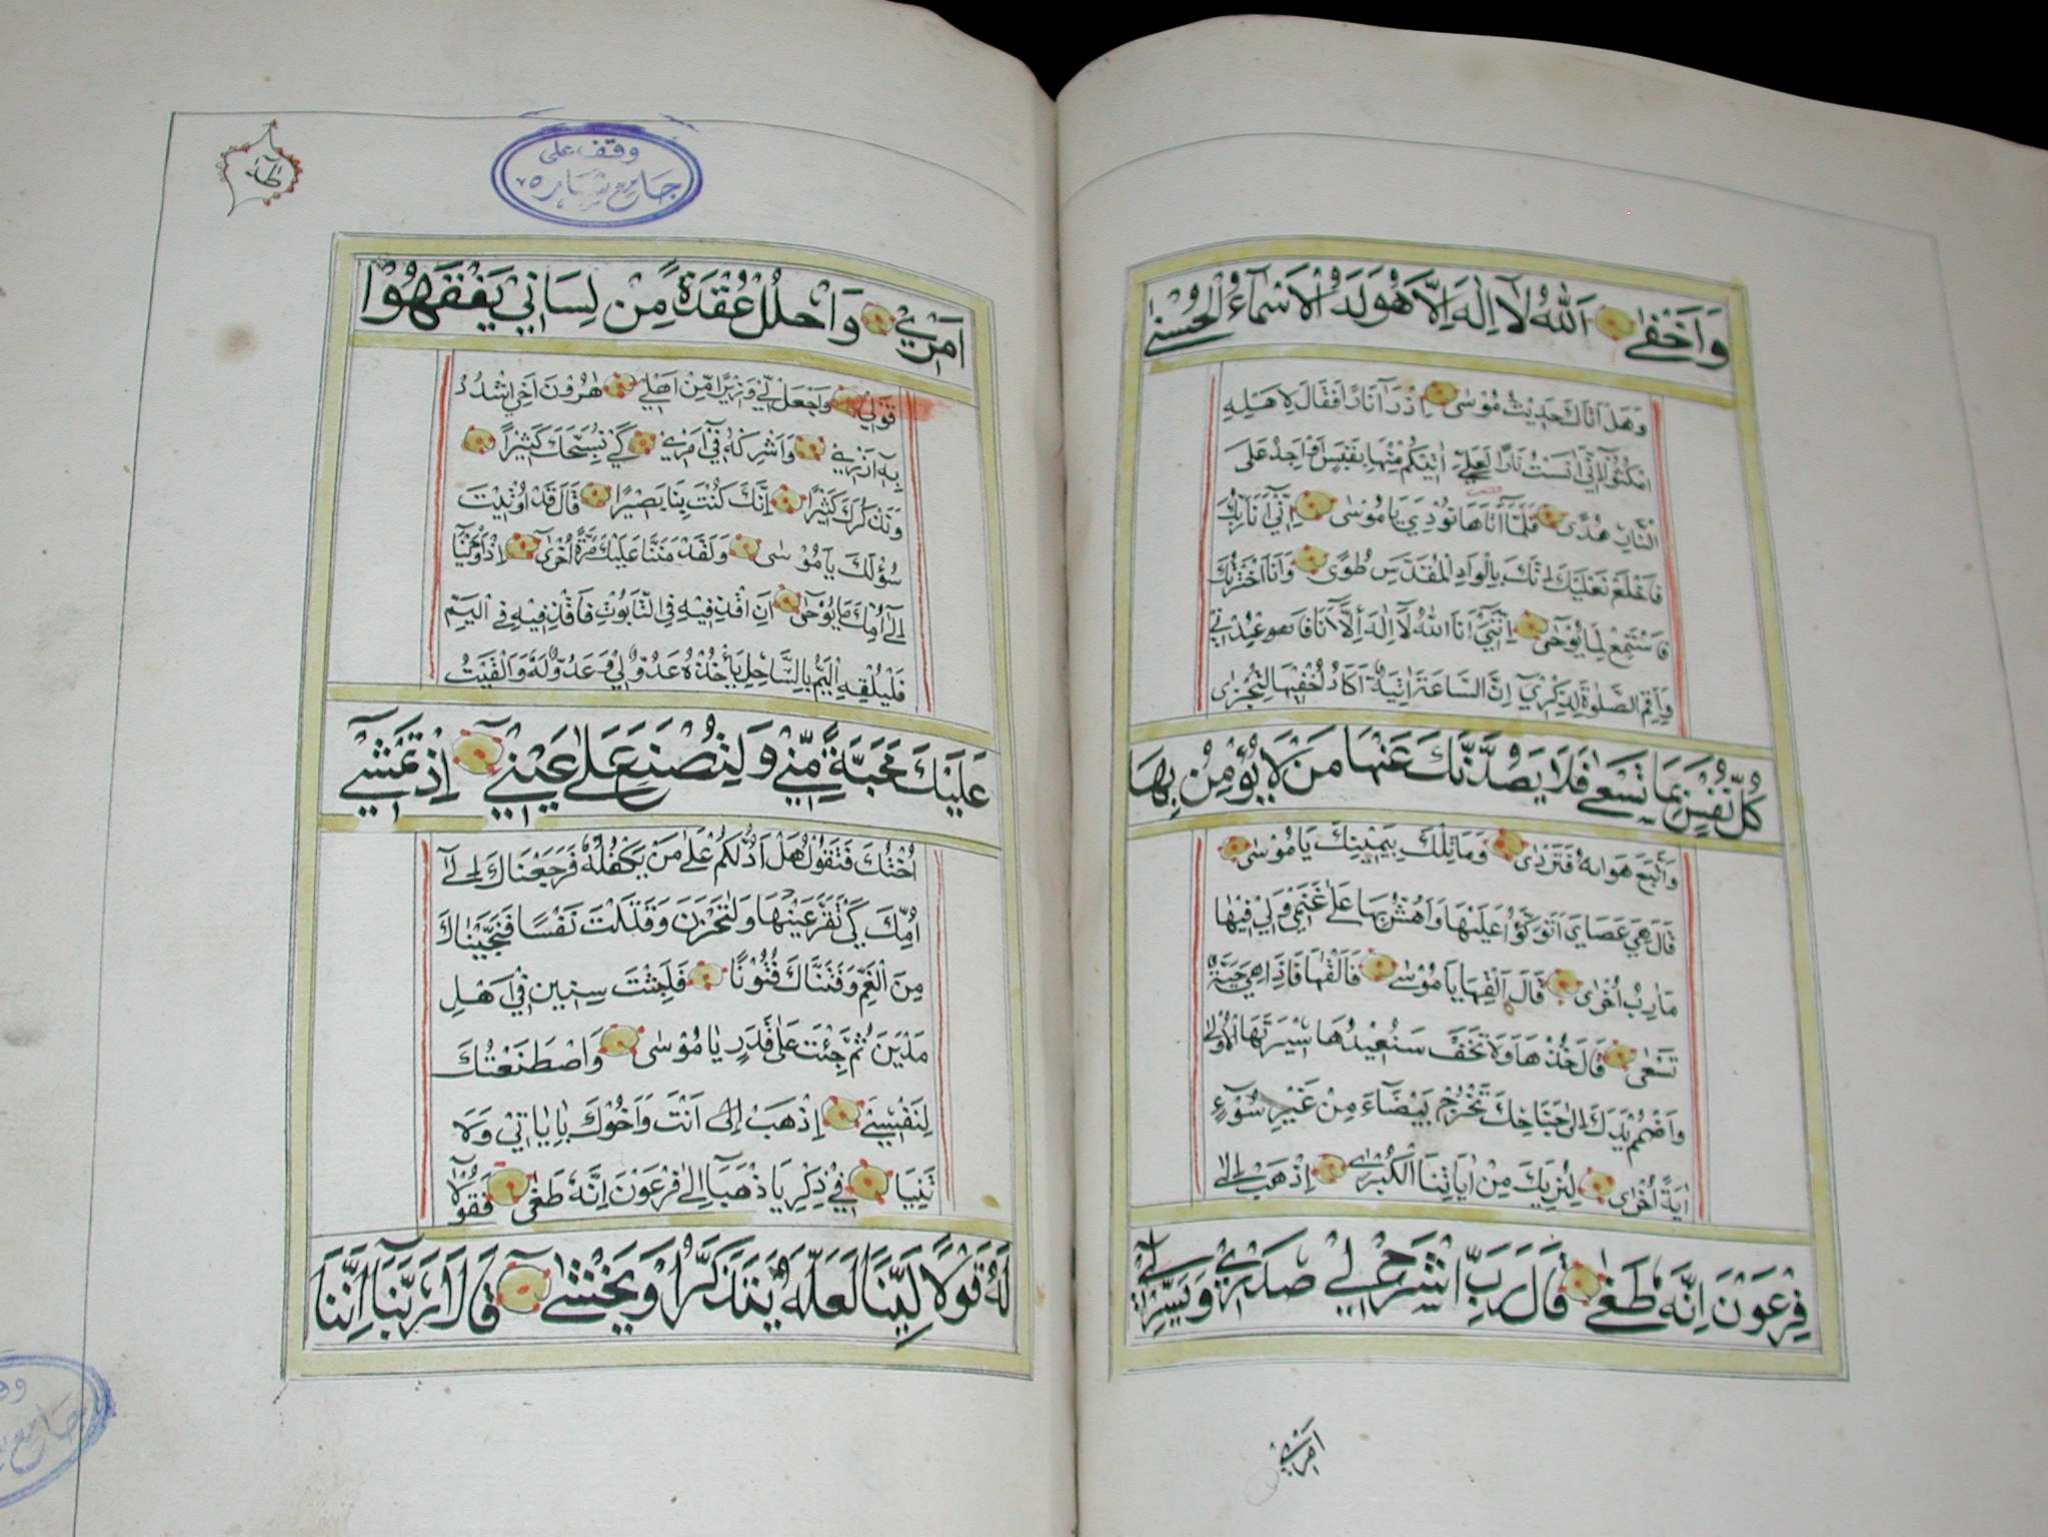 وَاَخْفٰى اَللّٰهُ لَآ اِلٰهَ اِلَّا هُوَ لَهُ الْاَسْمَآءُ الْحُسْنٰى
وَهَلْ اَتَاكَ حَدِيْثُ مُوْسٰى اِذْ رَاٰ نَارًا فَقَالَ لِاَهْلِهِ
امْكُثُوْٓا اِنّٰٓى اٰنَسْتُ نَارًا لَعَلِّيْٓ اٰتِيْكُمْ مِنْهَا بِقَبَسٍ اَوْ اَجِدُ عَلَى
النَّارِ هُدًى فَلَمَّآ اَتَاهَا نُوْدِيَ يَا مُوْسٰى اِنِّيْٓ اَنَا رَبُّكَ
فَاخْلَعْ نَعْلَيْكَ اِنَّكَ بِالْوَادِ الْمُقَدَّسِ طُوًى وَاَنَا اخْتَرْتُكَ
فَاسْتَمِعْ لِمَا يُوْحٰى اِنَّنِيْٓ اَنَا اللّٰهُ لَآ اِلٰهَ اِلَّآ اَنَا فَاعْبُدْنِيْ
وَاَقِمِ الصَّلٰوةَ لِذِكْرِيْ اِنَّ السَّاعَةَ اٰتِيَةٌ اَكَادُ اُخْفِيْهَا لِتُجْزٰى
كُلُّ نَفْسٍ بِمَا تَسْعٰى فَلَا يَصُدَّنَّكَ عَنْهَا مَنْ لَا يُؤْمِنُ بِهَا
وَاتَّبَعَ هَوَاهُ فَتَرْدٰى وَمَا تِلْكَ بِيَمِيْنِكَ يَا مُوْسٰى
قَالَ هِيَ عَصَايَ اَتَوَكَّؤُا عَلَيْهَا وَاَهُشُّ بِهَا عَلٰى غَنَمِيْ وَلِيَ فِيْهَا
مَاٰرِبُ اُخْرٰى قَالَ اَلْقِهَا يَا مُوْسٰى فَاَلْقٰهَا فَاِذَا هِيَ حَيَّةٌ
تَسْعٰى قَالَ خُذْهَا وَلَا تَخَفْ سَنُعِيْدُهَا سِيْرَتَهَا الْاُوْلٰى
وَاضْمُمْ يَدَكَ اِلٰى جَنَاحِكَ تَخْرُجْ بَيْضَآءَ مِنْ غَيْرِ سُوْٓءٍ
اٰيَةً اُخْرٰى لِنُرِيَكَ مِنْ اٰيَاتِنَا الْكُبْرٰى اِذْهَبْ اِلٰى
فِرْعَوْنَ اِنَّهُ طَغٰى قَالَ رَبِّ اشْرَحْ لِيْ صَدْرِيْ وَيَسِّرْ لِيْٓ
اَمْرِيْ
طٰهٰ
وقف على
جامع شباره
اَمْرِيْ وَاحْلُلْ عُقْدَةً مِنْ لِسَانِيْ يَفْقَهُوْا
قَوْلِيْ وَاجْعَلْ لِيْ وَزِيْرًا مِنْ اَهْلِيْ هٰرُوْنَ اَخِيْ اشْدُدْ
بِهٓ اَزْرِيْ وَاَشْرِكْهُ فِيْٓ اَمْرِيْ كَيْ نُسَبِّحَكَ كَثِيْرًا
وَنَذْكُرَكَ كَثِيْرًا اِنَّكَ كُنْتَ بِنَا بَصِيْرًا قَالَ قَدْ اُوْتِيْتَ
سُؤْلَكَ يَا مُوْسٰى وَلَقَدْ مَنَنَّا عَلَيْكَ مَرَّةً اُخْرٰى اِذْ اَوْحَيْنَآ
اِلٰٓى اُمِّكَ مَا يُوْحٰى اَنِ اقْذِفِيْهِ فِي التَّابُوْتِ فَاقْذِفِيْهِ فِي الْيَمِّ
فَلْيُلْقِهِ الْيَمُّ بِالسَّاحِلِ يَأْخُذْهُ عَدُوٌّ لِيْ وَعَدُوٌّ لَهُ وَاَلْقَيْتُ
عَلَيْكَ مَحَبَّةً مِنِّيْ وَلِتُصْنَعَ عَلٰى عَيْنِيْ اِذْ تَمْشِيْٓ
اُخْتُكَ فَتَقُوْلُ هَلْ اَدُلُّكُمْ عَلٰى مَنْ يَكْفُلُهُ فَرَجَعْنَاكَ اِلٰٓى
اُمِّكَ كَيْ تَقَرَّ عَيْنُهَا وَلَا تَحْزَنَ وَقَتَلْتَ نَفْسًا فَنَجَّيْنَاكَ
مِنَ الْغَمِّ وَفَتَنَّاكَ فُتُوْنًا فَلَبِثْتَ سِنِيْنَ فِيْٓ اَهْلِ
مَدْيَنَ ثُمَّ جِئْتَ عَلٰى قَدَرٍ يَا مُوْسٰى وَاصْطَنَعْتُكَ
لِنَفْسِيْ اِذْهَبْ اَنْتَ وَاَخُوْكَ بِاٰيَاتِيْ وَلَا
تَنِيَا فِيْ ذِكْرِيْ اِذْهَبَآ اِلٰى فِرْعَوْنَ اِنَّهُ طَغٰى فَقُوْلَا
لَهُ قَوْلًا لَيِّنًا لَعَلَّهُ يَتَذَكَّرُ اَوْ يَخْشٰى قَالَا رَبَّنَآ اِنَّنَا